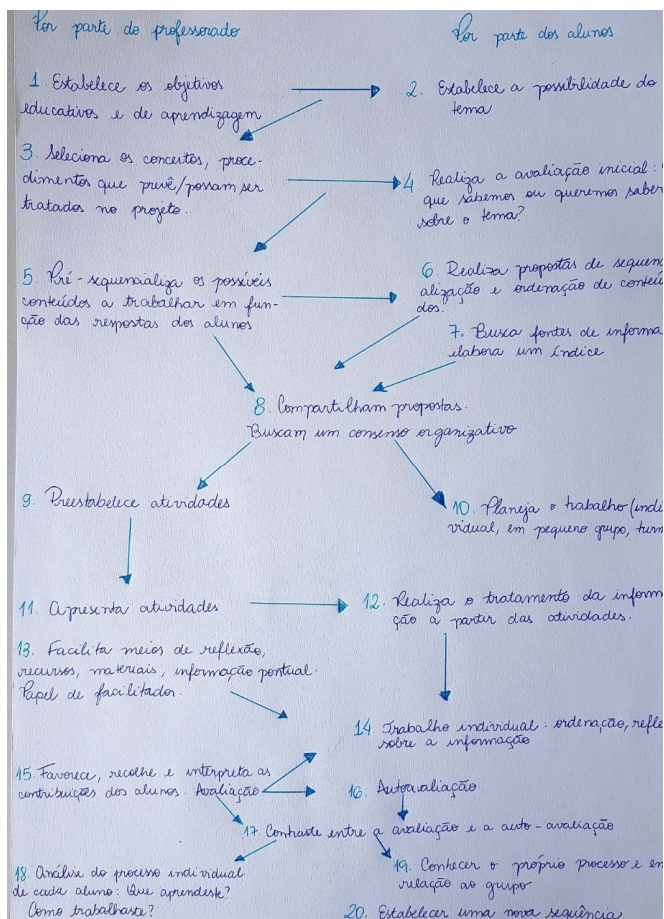 Por parte do professorado
Por parte dos alunos
1. Estabelece os objetivos
educativos e de aprendizagem
2. Estabelece a possibilidade do
tema
3. Seleciona os conceitos, proce-
dimentos que prevê/possam ser
tratados no projeto.
4. Realiza a avaliação inicial:
que sabemos ou queremos saber
sobre o tema?
5. Pré-sequencializa os possíveis
conteúdos a trabalhar em fun-
ção das respostas dos alunos
6. Realiza propostas de sequen
alização e ordenação de conteú
dos.
7. Busca fontes de informa
elabora um índice
8. Compartilham propostas.
Buscam um consenso organizativo
9. Preestabelece atividades
10. Planeja o trabalho (indi
vidual, em pequeno grupo, turm
11. Apresenta atividades
12. Realiza o tratamento da inform
ção a partir das atividades.
13. Facilita meios de reflexão,
recursos, materiais, informação pontual.
Papel de facilitador.
14 Trabalho individual: ordenação, refle
sobre a informação
15. Favorece, recolhe e interpreta as
contribuições dos alunos. Avaliação
16. Autoavaliação
17. Contraste entre a avaliação e a auto-avaliação
18. Análise do processo individual
de cada aluno: Que aprendeste?
Como trabalhaste?
19. Conhecer o próprio processo e em
relação ao grupo
20. Estabelecer uma nova sequência